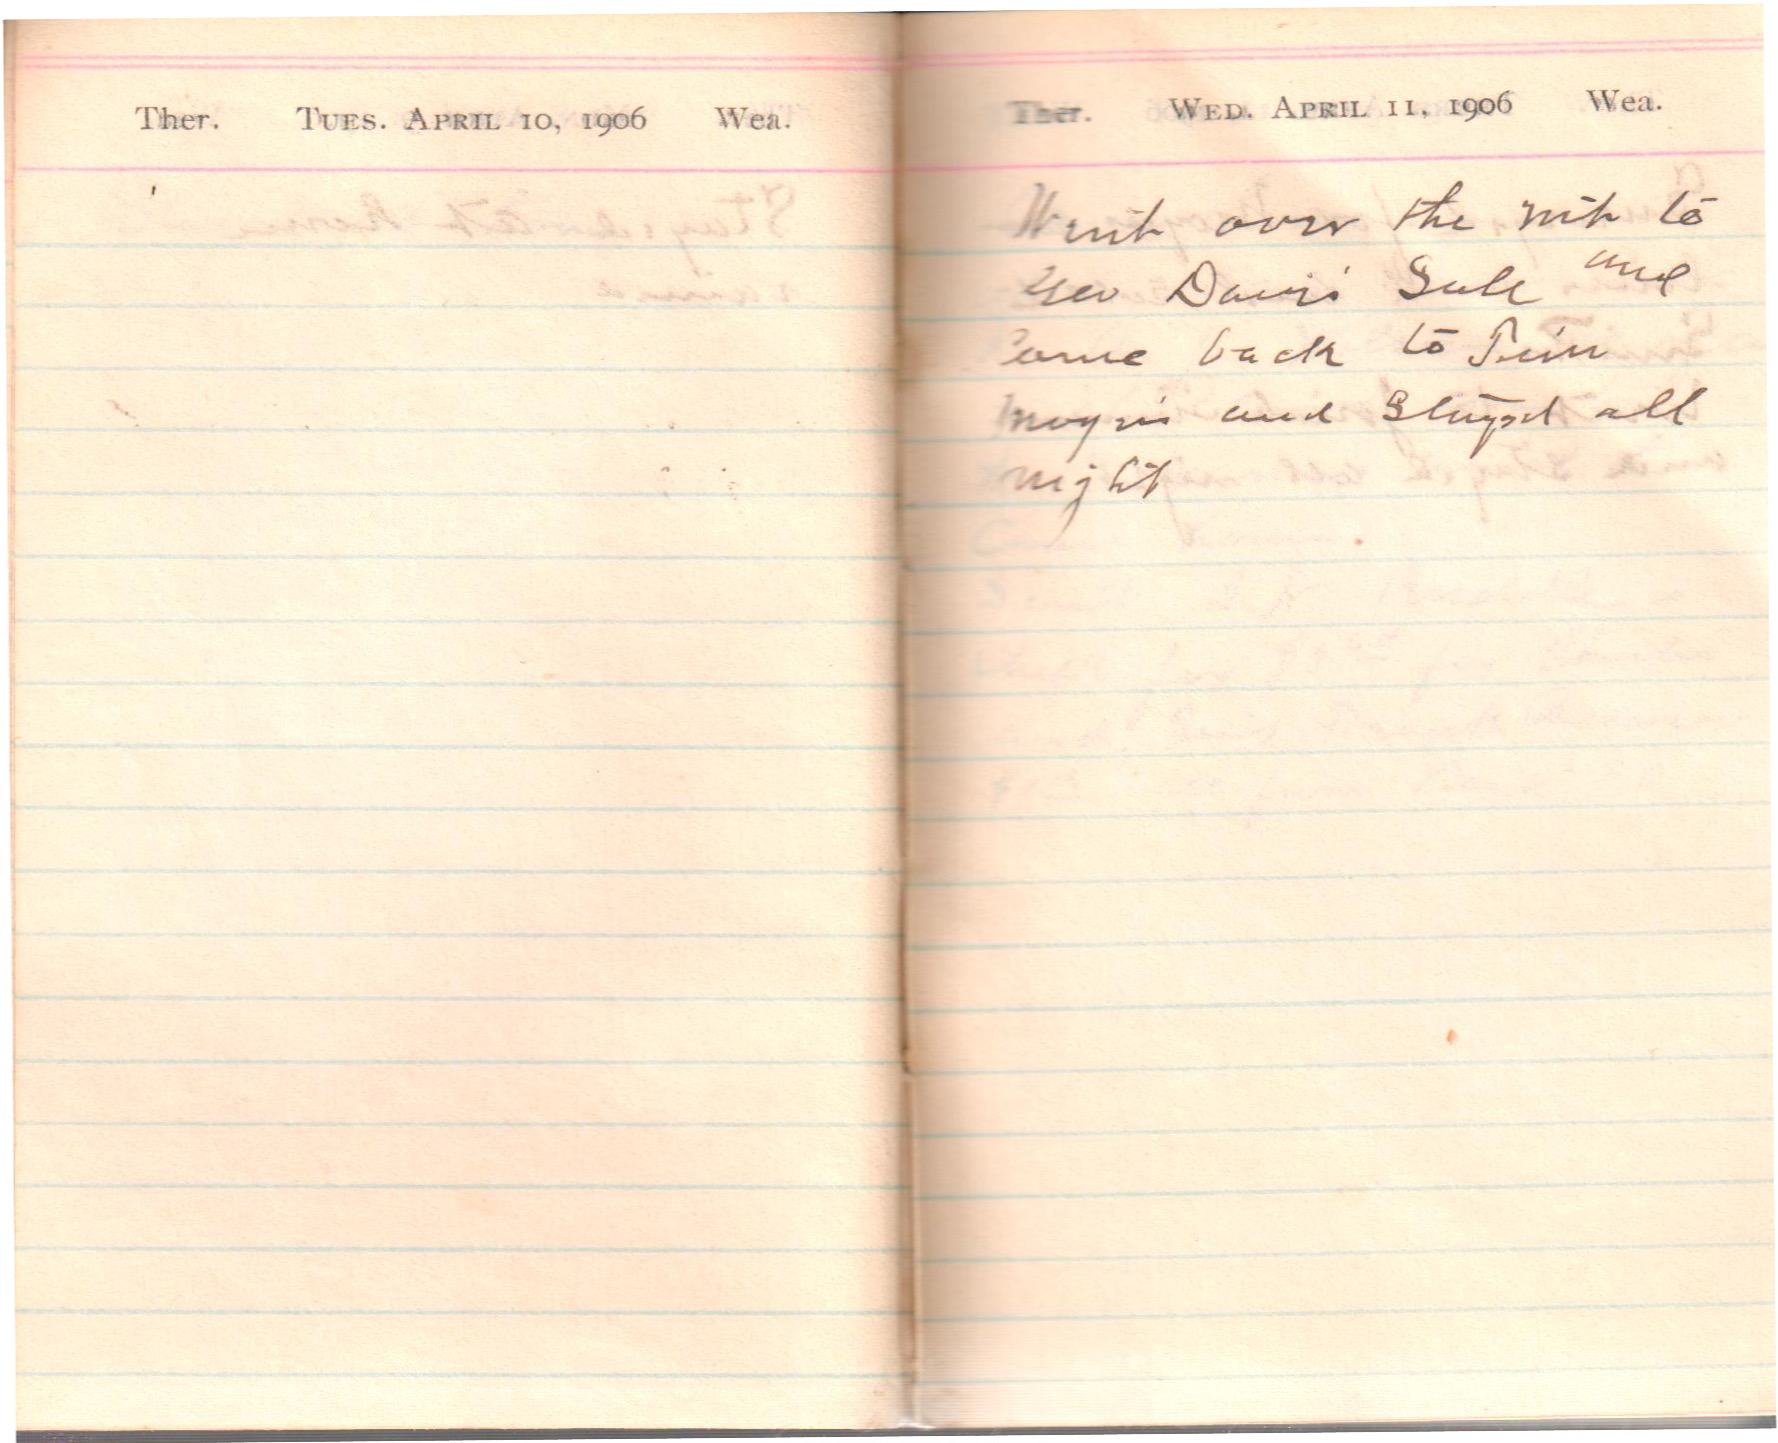 Ther. TUES. APRIL 10, 1906 Wea.
Ther. WED. APRIL 11, 1906 Wea.
Went over the to
Geo Davis' Sale and
Came back to Jim
and Stayed all
night